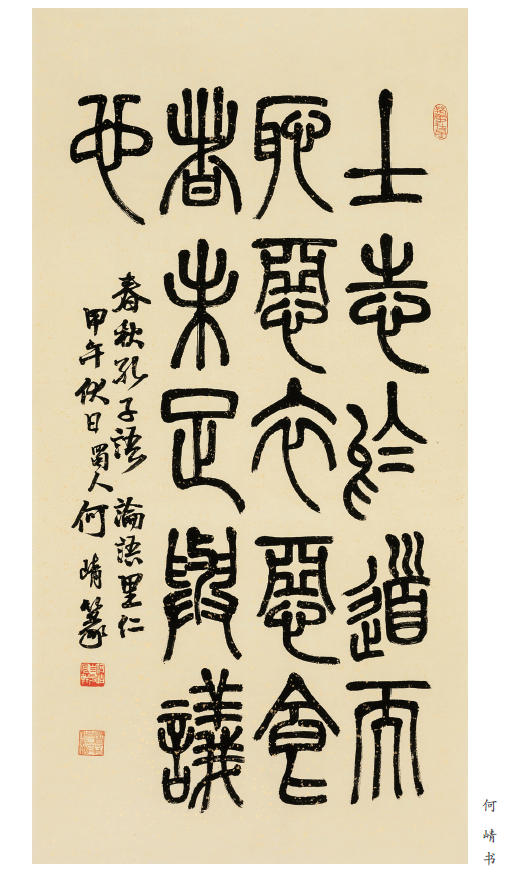 士志於道而
恥惡衣惡食
者未足與議
也
春秋孔子語 論語里仁
甲午伏日蜀人何崝篆
何崝书